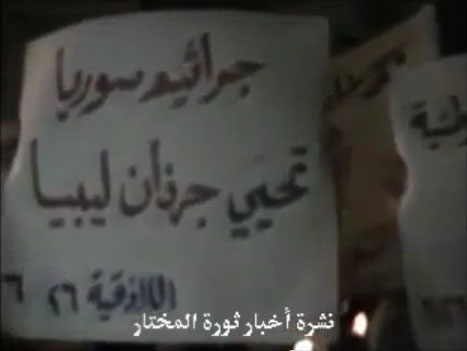 جراثيم سوريا
تحيي جرذان ليبيا
اللاذقية ٢٦
نشرة أخبار ثورة المختار